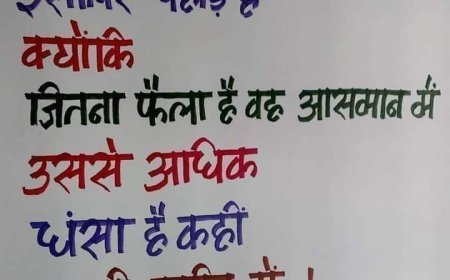 पहाड़ है
क्योंकि
जितना फैला है वह आसमान में
उससे आधिक
धंसा है कहीं
में।